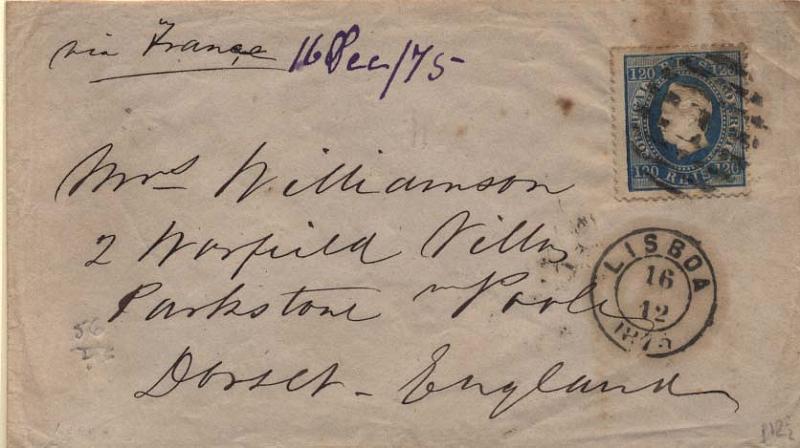 via France 16 Dec/75
Mrs Williamson
2 Warfield Villas
Parkstone nr Poole
Dorset - England
120 120
CORREIO PORTUGAL
120 REIS 120
LISBOA
16
12
1875
56